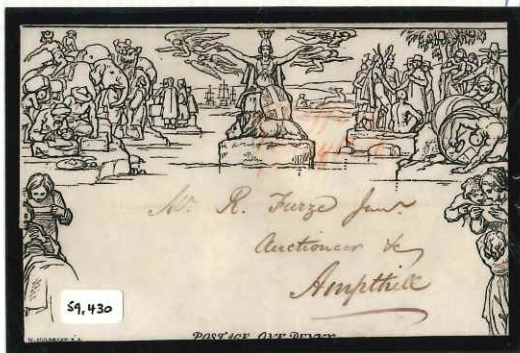 Mr. R. Furze Junr.
Auctioneer &c
Ampthill
59,430
W. MULREADY R.A.
POSTAGE ONE PENNY